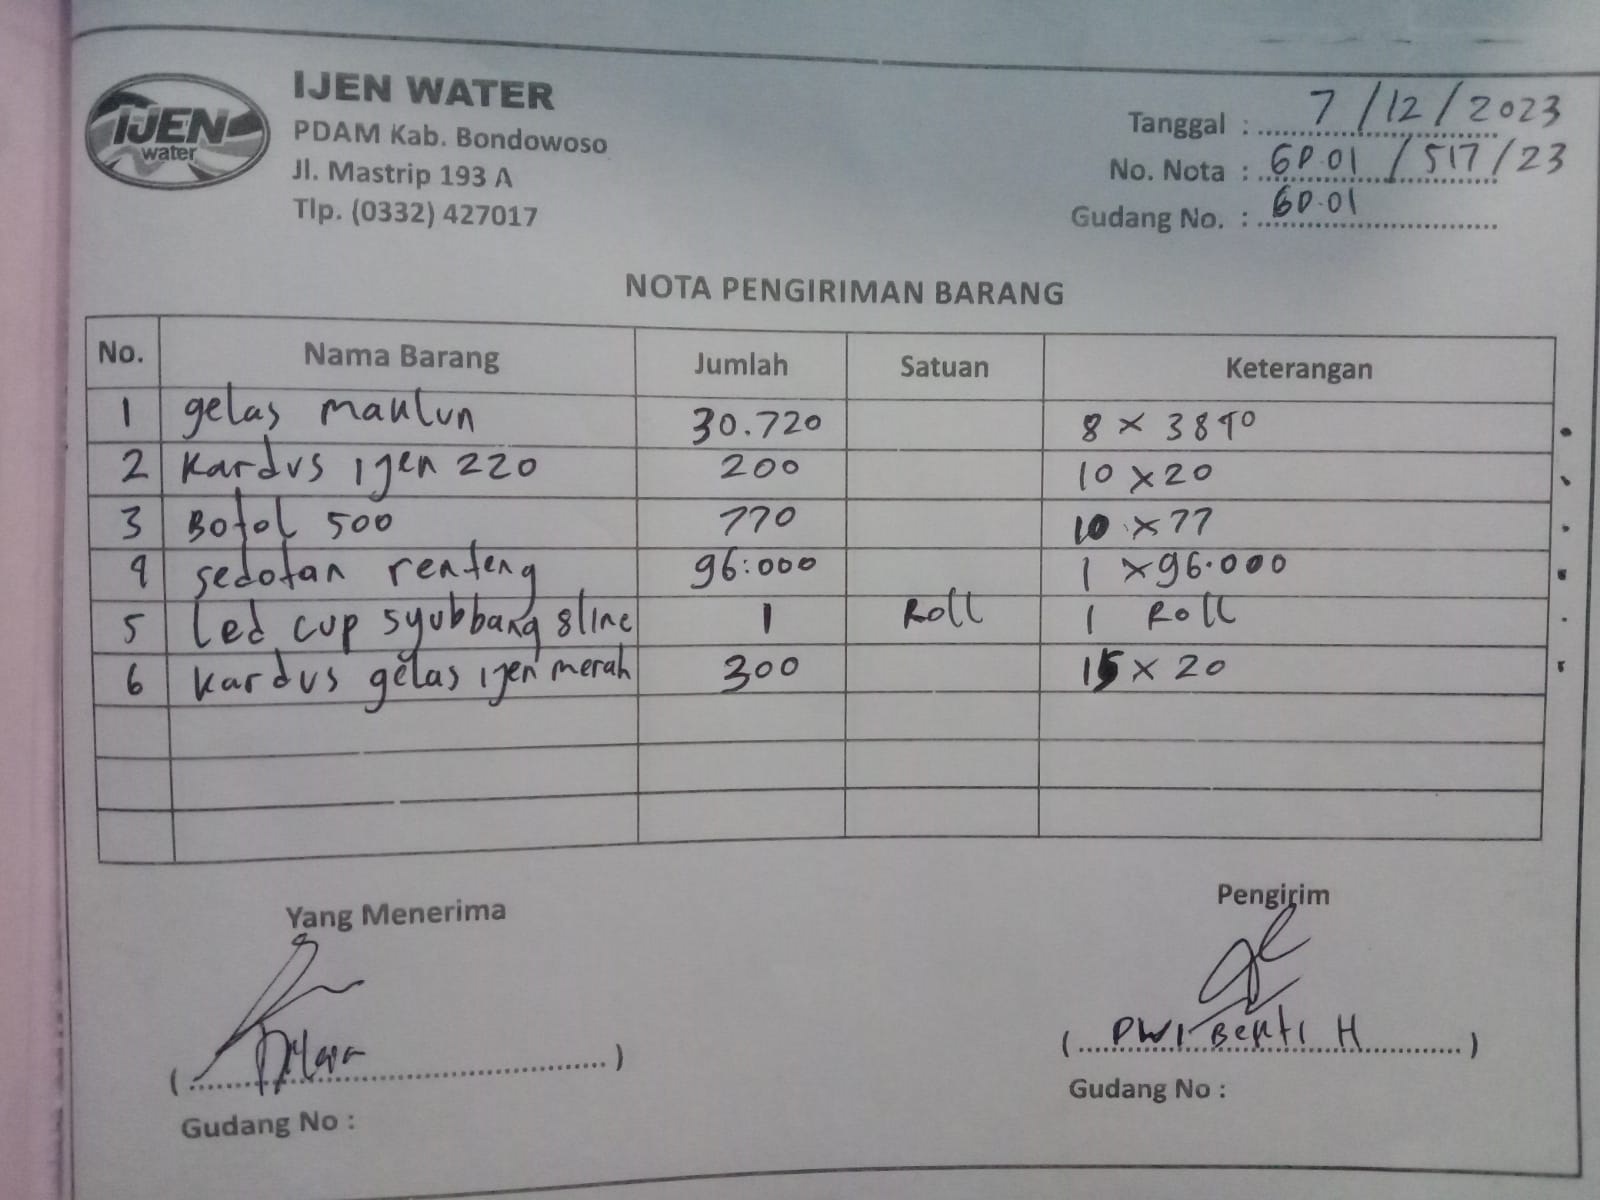 IJEN water
IJEN WATER
PDAM Kab. Bondowoso
Jl. Mastrip 193 A
Tlp. (0332) 427017
Tanggal : 7/12/2023
No. Nota : GD.01/517/23
Gudang No. : GD.01
NOTA PENGIRIMAN BARANG
No. Nama Barang Jumlah Satuan Keterangan
1 gelas maklun 30.720 8 x 3840
2 kardus ijen 220 200 10 x 20
3 Botol 500 770 10 x 77
4 sedotan renteng 96.000 1 x 96.000
5 led cup syubbang 8line 1 Roll 1 Roll
6 kardus gelas ijen merah 300 15 x 20
Yang Menerima Pengirim
( ) ( DWI BEKTI H )
Gudang No : Gudang No :